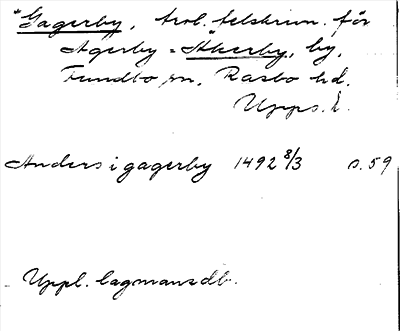 *Gagerby, trol. felskrivn. för
Agerby = Åkerby, by,
Funbo sn, Rasbo hd.
Upps. l.
Anders i gagerby 1492 8/3 s. 59
Uppl. lagmansdb.